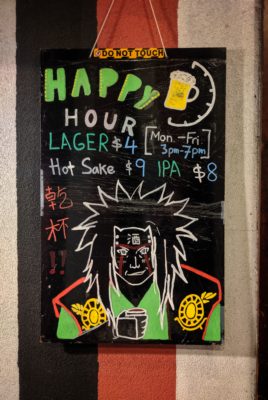 DO NOT TOUCH
HAPPY
HOUR
LAGER $4 [Mon.-Fri
3pm-7pm]
Hot Sake $9 IPA $8
乾
杯
!!
酒